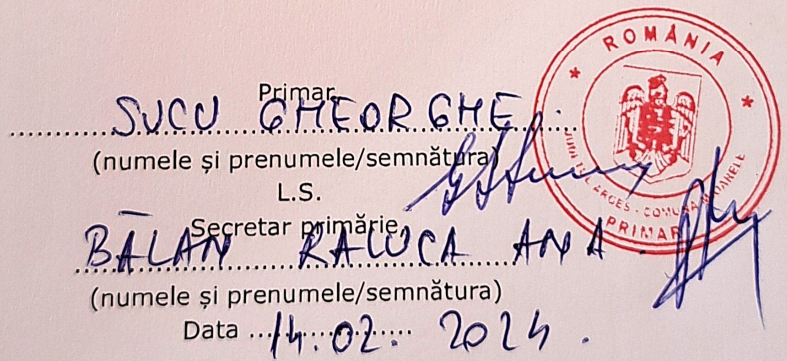 Primar,
SUCU GHEORGHE
(numele și prenumele/semnătura)
L.S.
Secretar primărie,
BĂLAN RALUCA ANA
(numele și prenumele/semnătura)
Data 14.02.2024.
ROMÂNIA
ARGEȘ - COMUNA
PRIMAR